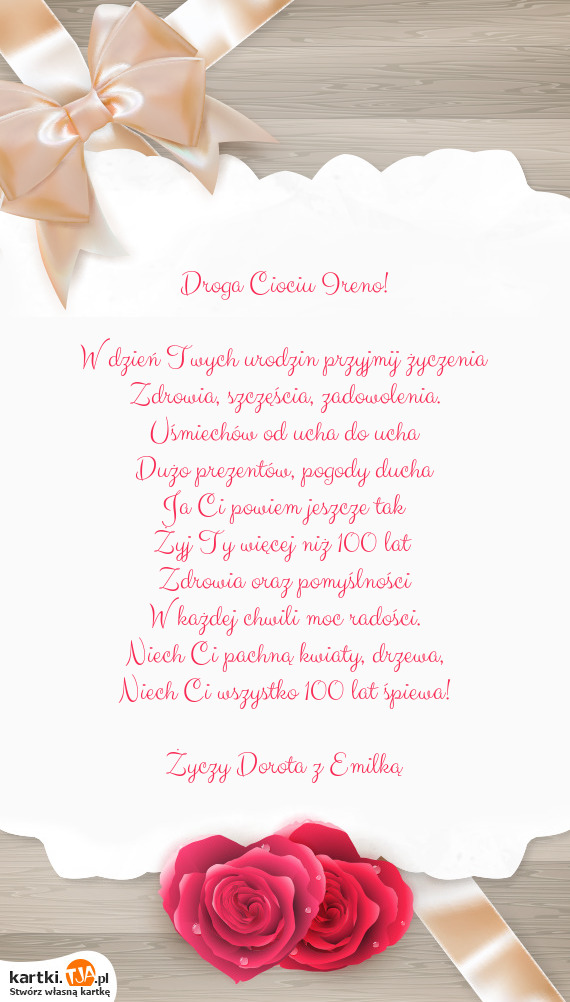 Droga Ciociu Ireno!
W dzień Twych urodzin przyjmij życzenia
Zdrowia, szczęścia, zadowolenia.
Uśmiechów od ucha do ucha
Dużo prezentów, pogody ducha
Ja Ci powiem jeszcze tak
Żyj Ty więcej niż 100 lat
Zdrowia oraz pomyślności
W każdej chwili moc radości.
Niech Ci pachną kwiaty, drzewa,
Niech Ci wszystko 100 lat śpiewa!
Życzy Dorota z Emilką
kartki.TJA.pl
Stwórz własną kartkę